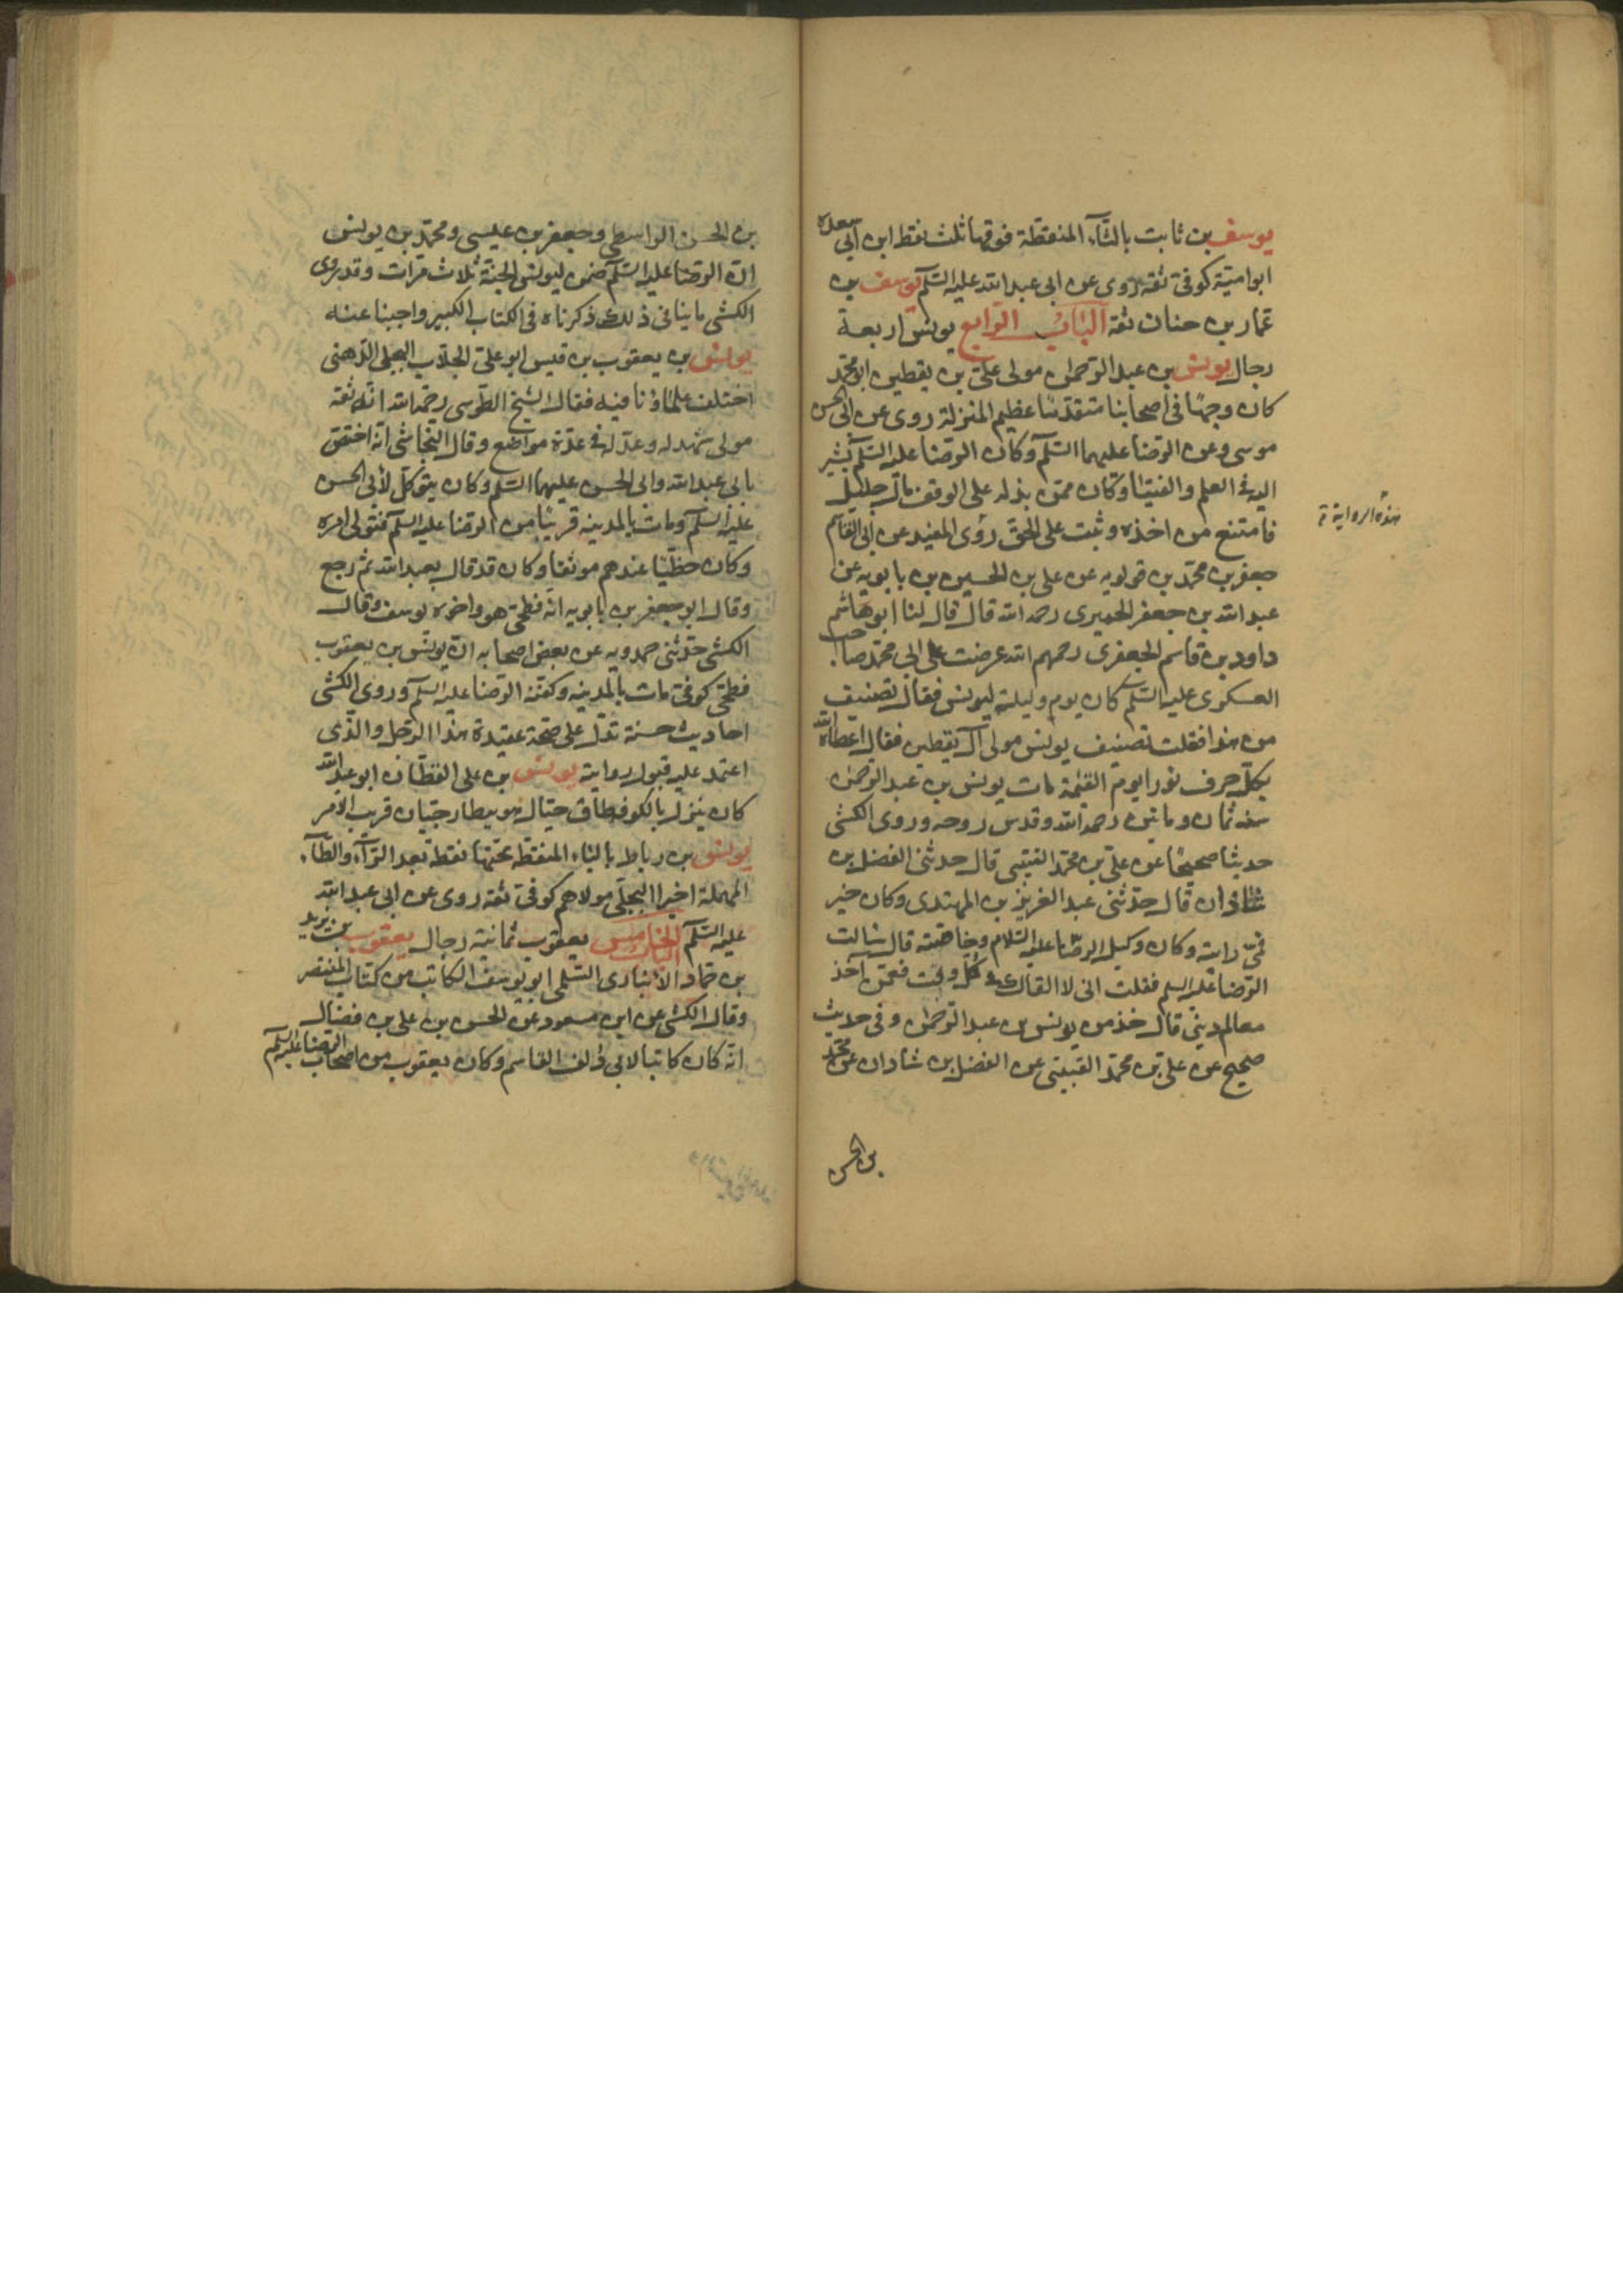 يوسف بن ثابت بالثاء المنقطة فوقها ثلث نقط ابن ابي سعده
ابو امية كوفي ثقة روى عن ابي عبد الله عليه السلم يوسف بن
عمار بن حنان ثقة الباب الرابع يونس اربعة
رجال يونس بن عبد الرحمان مولى علي بن يقطين ابو محمد
كان وجها في اصحابنا متقدما عظيم المنزلة روى عن ابي الحسن
موسى وعن الرضا عليهما السلم وكان الرضا عليه السلم يشير
اليه في العلم والفتيا وكان ممن بذل له على الوقف مال جليل
فامتنع من اخذه وثبت على الحق روى المفيد عن ابي القاسم
هذه الرواية
جعفر بن محمد بن قولويه عن علي بن الحسين بن بابويه عن
عبد الله بن جعفر الحميري رحمه الله قال قال لنا ابو هاشم
داود بن قاسم الجعفري رحمهم الله عرضت على ابي محمد صاحب
العسكري عليه السلم كتاب يوم وليلة ليونس فقال تصنيف
من هذا فقلت تصنيف يونس مولى آل يقطين فقال اعطاه الله
بكل حرف نورا يوم القيمة مات يونس بن عبد الرحمن
سنه ثمان ومائتين رحمه الله وقدس روحه وروى الكشي
حديثا صحيحا عن علي بن محمد القتيبي قال حدثني الفضل بن
شاذان قال حدثني عبد العزيز بن المهتدي وكان خير
قمي رايته وكان وكيل الرضا عليه السلام وخاصته قال سالت
الرضا عليه السلم فقلت اني لا القاك في كل وقت فعمن آخذ
معالم ديني قال خذ من يونس بن عبد الرحمان وفي حديث
صحيح عن علي بن محمد القتيبي عن الفضل بن شاذان عن محمد
بن الحسن
بن الحسن الواسطي وجعفر بن عيسى ومحمد بن يونس
ان الرضا عليه السلم ضمن ليونس الجنة ثلاث مرات وقد روى
الكشي ما ينافي ذلك ذكرناه في الكتاب الكبير واجبنا عنه
يونس بن يعقوب بن قيس ابو علي الجلاب البجلي الدهني
اختلف علماؤنا فيه فقال الشيخ الطوسي رحمه الله انه ثقة
مولى شهد له وعدله في عدة مواضع وقال النجاشي انه اختص
بابي عبد الله وابي الحسن عليهما السلم وكان يتوكل لابي الحسن
عليه السلم ومات بالمدينه قريبا من الرضا عليه السلم فتولى امره
وكان حظيا عندهم موثقا وكان قد قال بعبد الله ثم رجع
وقال ابو جعفر بن بابويه انه فطحي هو واخوه يوسف وقال
الكشي حدثني حمدويه عن بعض اصحابه ان يونس بن يعقوب
فطحي كوفي مات بالمدينه وكفنه الرضا عليه السلم وروى الكشي
احاديث حسنة تدل على صحة عقيدة هذا الرجل والذي
اعتمد عليه قبول روايته يونس بن علي القطان ابو عبد الله
كان ينزل بالكوفه طاق حيال هو بيطار حيان قريب الامر
يونس بن رباط بالباء المنقطة تحتها نقطة بعد الراء والطاء
المهملة اخيرا البجلي مولاهم كوفي ثقه روى عن ابي عبد الله
عليه السلم الباب الخامس يعقوب ثمانية رجال يعقوب بن يزيد
بن حماد الانباري السلمي ابو يوسف الكاتب من كتاب المنتصر
وقال الكشي عن ابن مسعود عن الحسن بن علي بن فضال
انه كان كاتبا لابي دلف القاسم وكان يعقوب من اصحاب الرضا عليه السلم